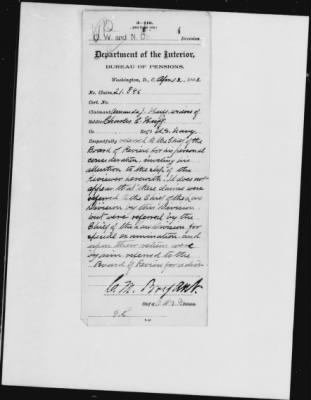 3-216.
O. W. and N. D Division
Department of the Interior,
BUREAU OF PENSIONS,
Washington, D. C.,
No. Claim 21.846
Cert. No.
Claimant Amanda J. widow of
Charles C.
Co. Reg't U.S. Navy
Respectfully referred to the Chief of the
Board of Review for his personal
consideration, inviting his
attention to the slip of the
reviewer herewith. It does not
appear that these claims were
referred to the Chief of the Law
Division by this Division
but were referred by the
Chief of the Law Division for
special examination and
upon their return were
by him referred to the
Board of Review for action
C. M. Bryant.
Chief